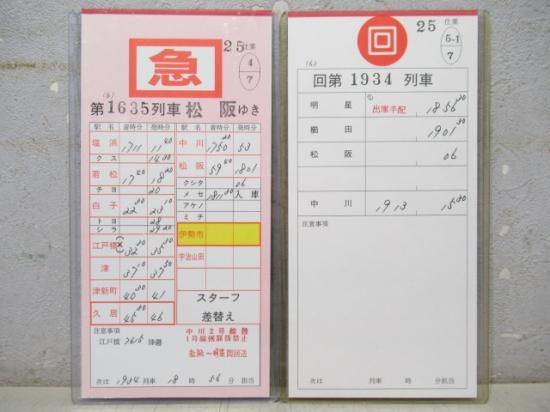 急
25 仕業
4
7
(6)
第1635列車 松阪ゆき
駅名 着時分 発時分
塩浜 17 11 11 40
クス 14 00
若松 17 40 18 20
チヨ 20
白子 22 23
トヨ 28
シラ
江戸橋 32 35
津 37 37 50
津新町 40 41
久居 45 46
駅名 着時分 発時分
中川 1750 53
松阪 59 1801
クシタ 06
メセ 1811 入庫
アケノ
ミチ
伊勢市
宇治山田
スターフ
差替え
注意事項
江戸橋 2615 待避
中川2号線着
松阪〜明星間回送
次は 1934 列車 18 時 56 分 担当
回
25 仕業
5-1
7
(6)
回第 1934 列車
明星 出庫手配 1856 30
櫛田 1901 30
松阪 06
中川 1913 15
注意事項
次は 列車 時 分担当